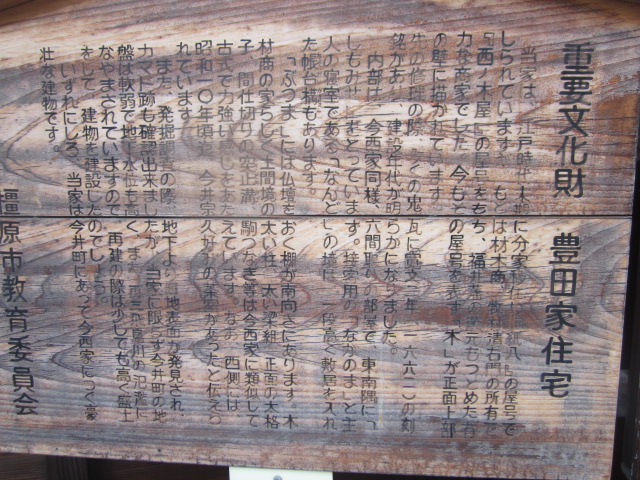 重要文化財 豊田家住宅
当家は、江戸時代 に分家 の屋号で
しられています。も は材木商 の所有で
「西ノ木屋」の屋号をもち、福 の蔵元もつとめた有
力な商家でした。今も の屋号を表す「木」が正面上部
の壁に描かれています。
の修理の際、 の鬼瓦に寛文 年(一六六二)の刻
銘があり、建設年代が明らかになりました。
内部は、今西家同様、六間取りの部屋で、東南隅に「
しもみせ」をとっています。接客用の「なかのま」と主
人の寝室である「なんど」の境は、一段高く敷居を入れ
た帳台構もあります。
「ぶつま」には仏壇をおく棚が南向きにあります。木
材商の家らしく土間境の太い柱、太い梁組、正面の太格
子、間仕切りの突止溝、駒つなぎ等は今西家に類似して
古式で力強い感じをたたえています。なお、西側には
昭和一〇年頃迄、今井宗久好みの茶室があったと伝えら
れています。
また、発掘調査の際、地下より 地表面が発見され、
カマド跡も確認出来ましたが、当家に限らず今井町の地
盤は軟弱で地下水位も高く、また 川の氾濫に
なやまされていますので、再建の際は少しでも高く盛土
をして、建物を建設したのでしょう。
いずれにしろ、当家は今井町にあって今西家につぐ豪
壮な建物です。
橿原市教育委員会